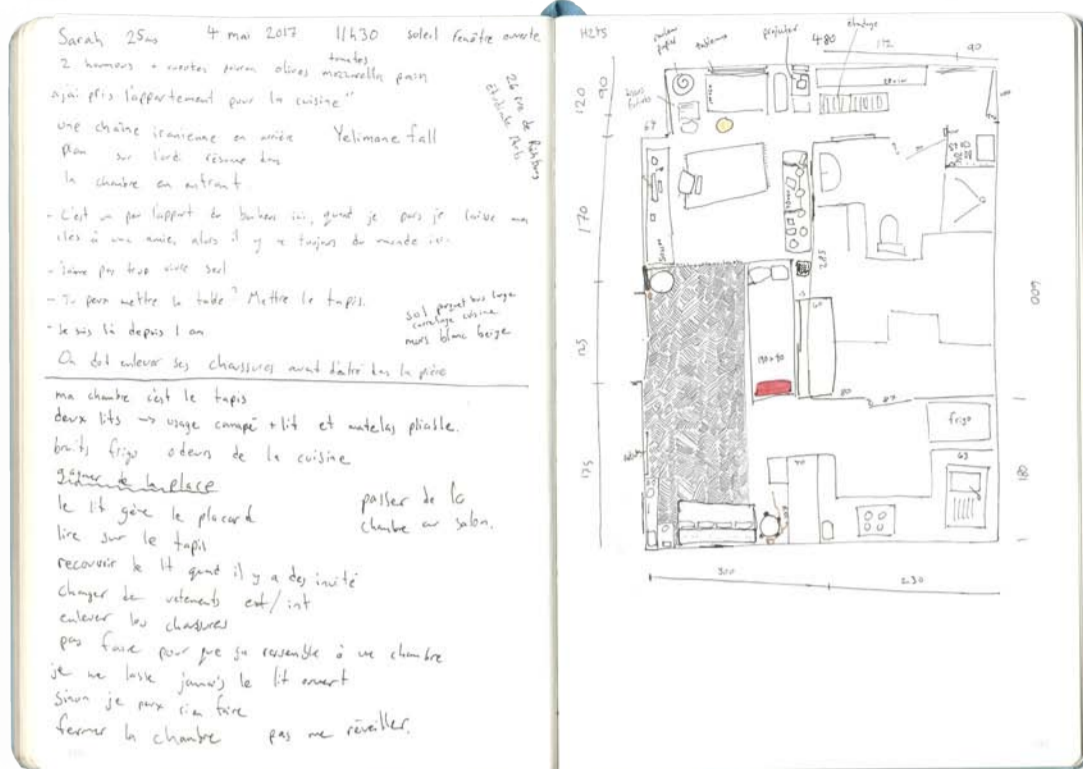 Sarah 25ans 4 mai 2017 11h30 soleil fenêtre ouverte
tomates
2 houmous + olives mozzarella pain
j'ai pris l'appartement pour la cuisine"
une chaîne iranienne en arrière Yelimane fall
plan sur l'ordi résonne dans
la chambre en entrant.
26 rue de
étudiante
- C'est un peu l'appart du bonheur ici, quand je pars je laisse mes
clés à une amie, alors il y a toujours du monde ici.
- J'aime pas trop vivre seul
- Tu peux mettre la table? Mettre le tapis.
- Je suis là depuis 1 an
sol parquet bois large
carrelage cuisine
murs blanc beige
On doit enlever ses chaussures avant d'entré dans la pièce
ma chambre c'est le tapis
deux lits → usage canapé + lit et matelas pliable.
bruits frigo odeurs de la cuisine
gagner de la place
le lit gêne le placard
lire sur le tapis
passer de la
chambre au salon.
recouvrir le lit quand il y a des invité
changer de vetements ext/int
enlever les chaussures
pas faire pour que ça ressemble à une chambre
je ne laisse jamais le lit ouvert
sinon je peux rien faire
fermer la chambre pas me réveiller.
H275
papier
tableau
projecteur
480
étendage
172
90
120
90
67
170
125
175
285
190 x 90
60
80
87
600
frigo
65
180
70
300
230